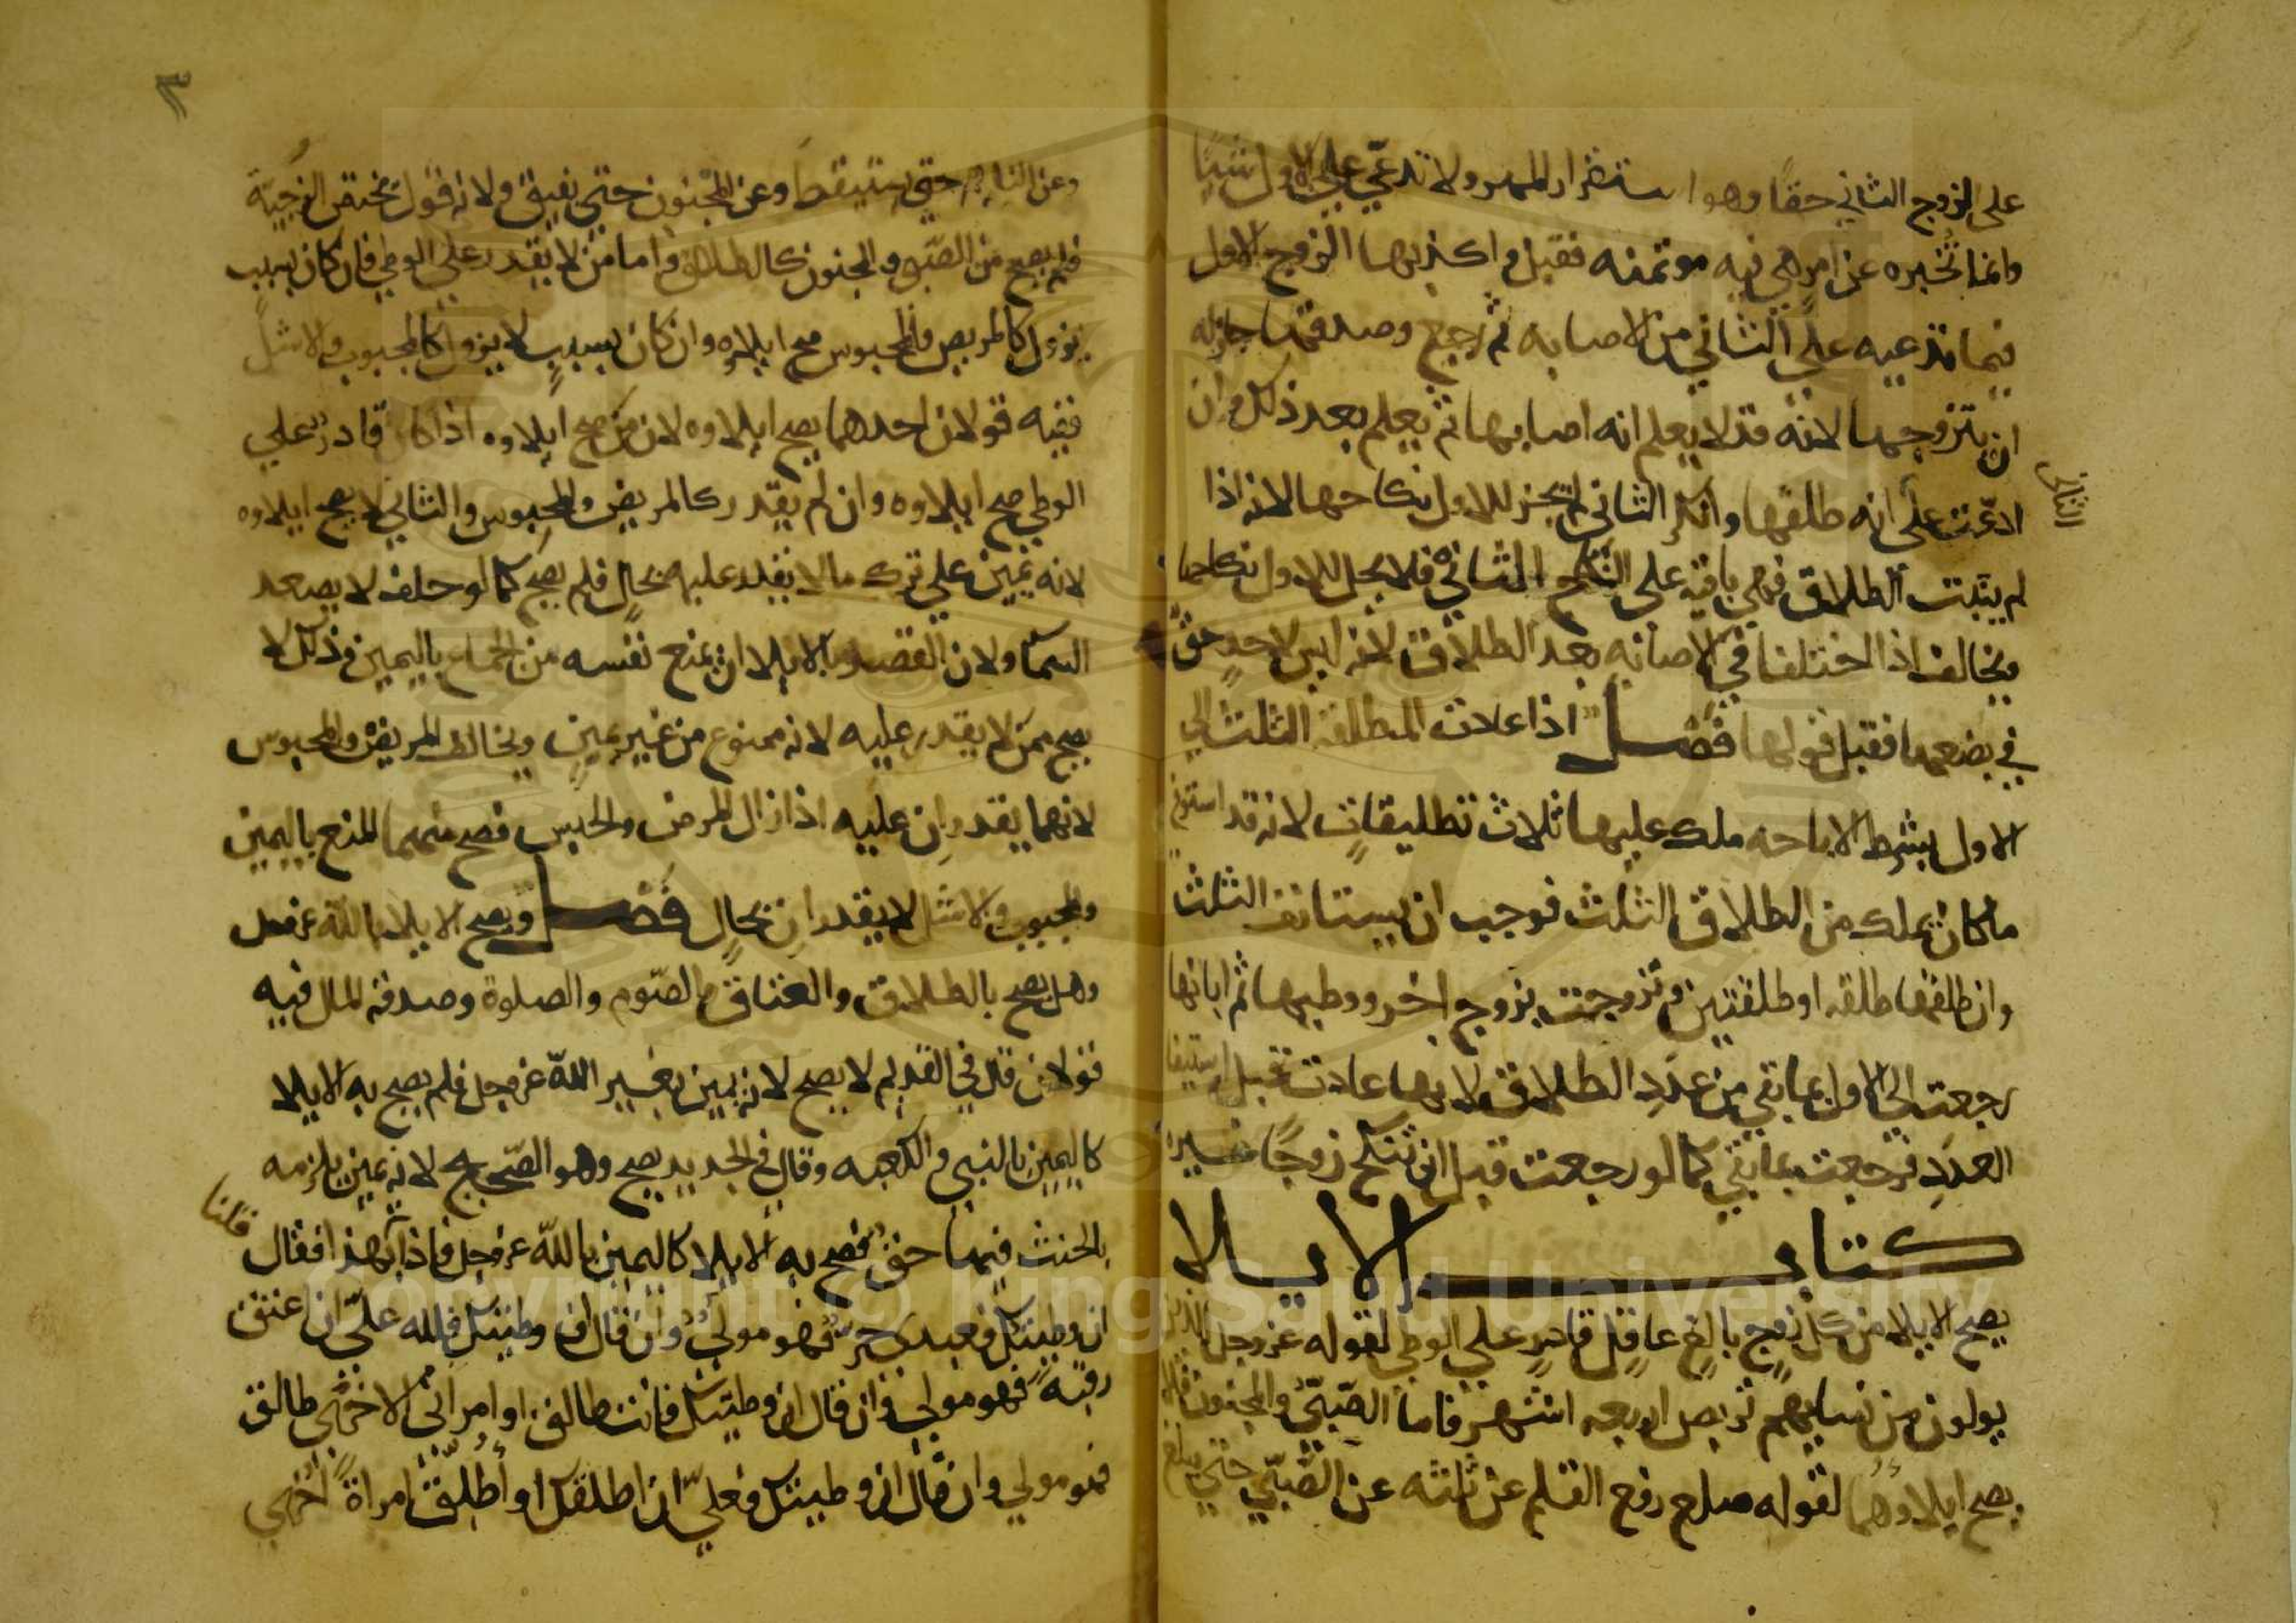 على الزوج الثاني حقا وهو استقرار المهر ولا تدعي على الاول شيا
وانما تخبره عن امر هي فيه موتمنه فقبل واكذبها الزوج الاول
فيما تدعيه على الثاني من الاصابه ثم رجع وصدقها جاز له
ان يتزوجها لانه قد لا يعلم انه اصابها ثم يعلم بعد ذلك وان
ادعت على انه طلقها وانكر الثاني لم يجز للاول نكاحها لانه اذا
الثاني
لم يثبت الطلاق فهي باقيه على النكاح الثاني فلا يحل للاول نكاحها
ويخالف اذا اختلفا في الاصابه بعد الطلاق لانه ليس لاحد حق
في بضعها فقبل قولها فصل اذا عادت المطلقة الثلث الي
الاول بشرط الاباحه ملك عليها ثلاث تطليقات لانه قد استوفي
ما كان يملك من الطلاق الثلث فوجب ان يستانف الثلث
وان طلقها طلقه او طلقتين وتزوجت بزوج اخر ووطيها ثم ابانها
رجعت الى الاول بما بقي من عدد الطلاق لانها عادت قبل استيفا
العدد فرجعت بما بقي كما لو رجعت قبل ان تنكح زوجا غيره
كتاب الايلا
يصح الايلا من كل زوج بالغ عاقل قادر على الوطي لقوله عز وجل للذين
يولون من نسايهم تربص اربعه اشهر فاما الصبي والمجنون فلا
يصح ايلاوهما لقوله صلع رفع القلم عن ثلثه عن الصبي حتي يبلغ
٣
وعن النايم حتي يستيقظ وعن المجنون حتي يفيق ولانه قول يختص الزوجية
فلم يصح من الصبي والمجنون كالطلاق واما من لا يقدر على الوطي فان كان بسبب
يزول كالمريض والمحبوس صح ايلاوه وان كان بسبب لا يزول كالمجبوب والاشل
ففيه قولان احدهما يصح ايلاوه لان من صح ايلاوه اذا كان قادر علي
الوطي صح ايلاوه وان لم يقدر كالمريض والمحبوس والثاني لا يصح ايلاوه
لانه يمين علي ترك ما لا يقدر عليه بحال فلم يصح كما لو حلف لا يصعد
السما ولان القصد بالايلا ان يمنع نفسه من الجماع باليمين وذلك لا
يصح ممن لا يقدر عليه لانه ممنوع من غير يمين ويخالف المريض والمحبوس
لانهما يقدران عليه اذا زال المرض والحبس فصح منهما المنع باليمين
والمجبوب والاشل لا يقدران بحال فصل ويصح الايلا بالله عز وجل
وهل يصح بالطلاق والعتاق والصوم والصلوة وصدقة المال فيه
قولان قال في القديم لا يصح لانه يمين بغير الله عز وجل فلم يصح به الايلا
كاليمين بالنبي والكعبه وقال في الجديد يصح وهو الصحيح لانه يمين يلزمه
بالحنث فيها حق فصح به الايلا كاليمين بالله عز وجل فاذا بهذا فقال
قلنا
ان وطيتك فعبدي حر فهو مولي وان قال ان وطيتك فلله علي ان اعتق
رقبة فهو مولي وان قال ان وطيتك فانت طالق او امراتي الاخري طالق
فهو مولي وان قال ان وطيتك فعلي ان اطلقك او اطلق امراة اخري